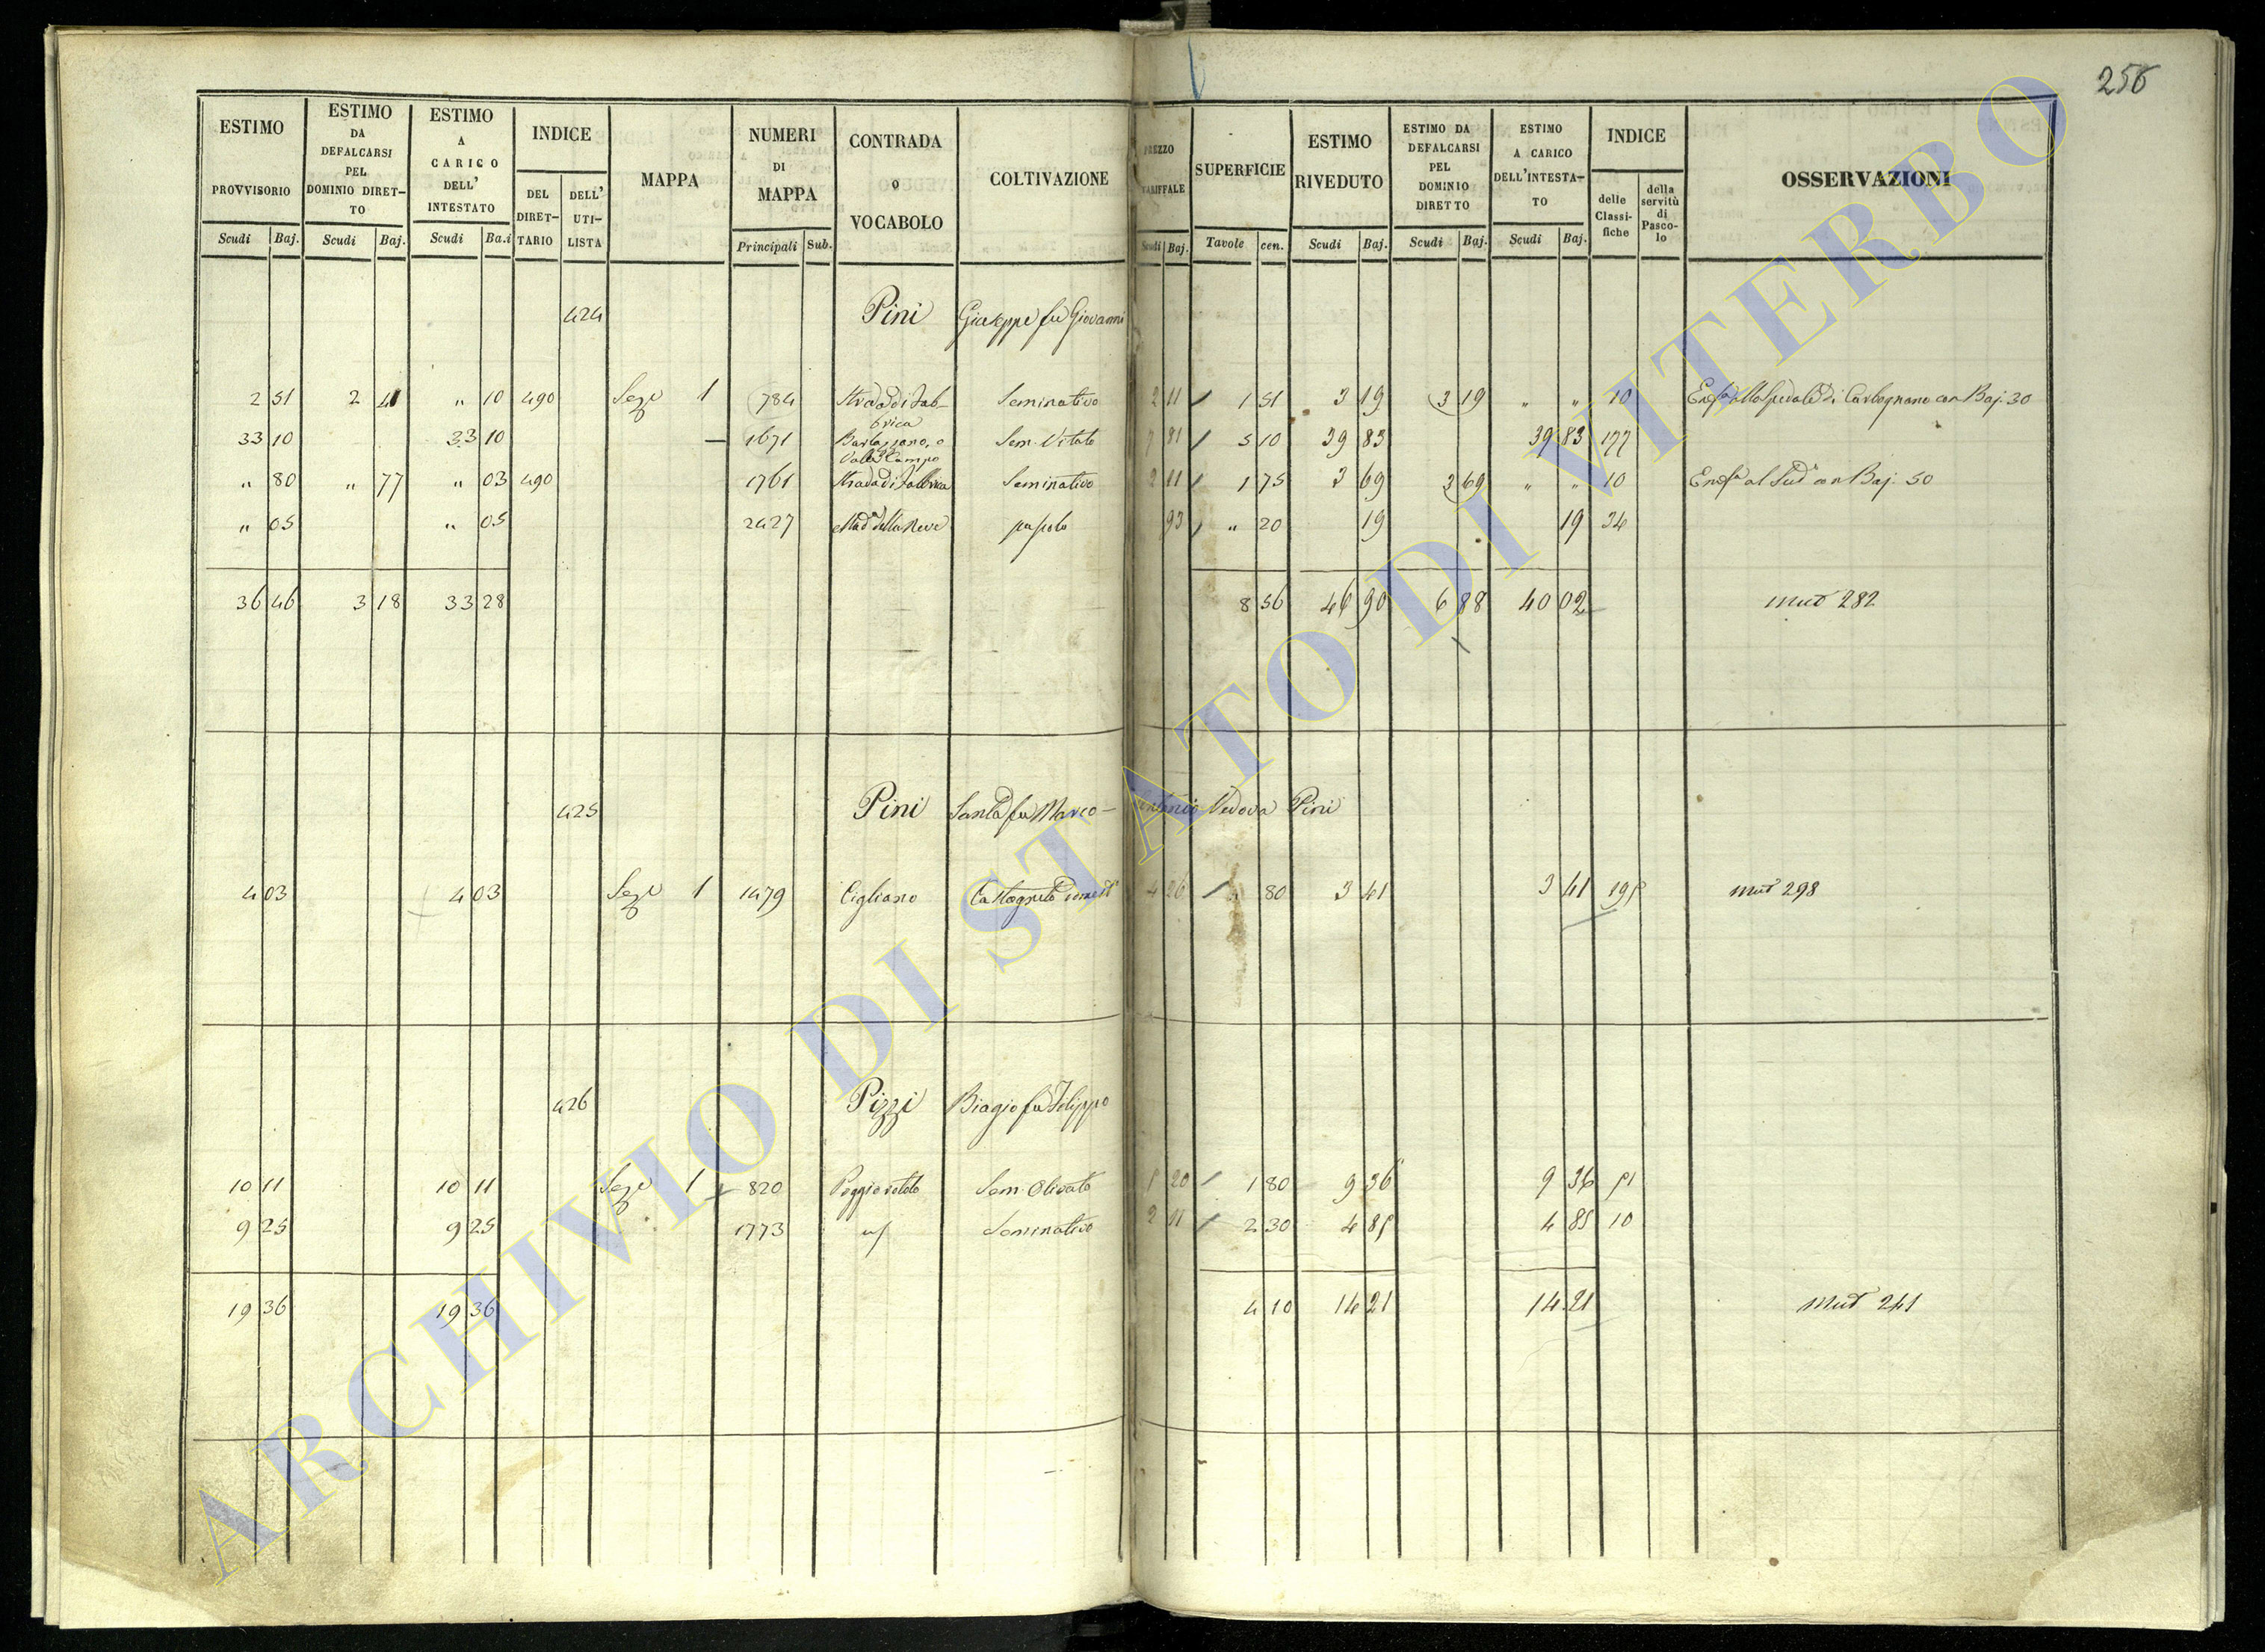 256
ESTIMO PROVVISORIO Scudi Baj. ESTIMO DA DEFALCARSI PEL DOMINIO DIRETTO Scudi Baj. ESTIMO A CARICO DELL' INTESTATO Scudi Ba.i INDICE DEL DIRETTARIO DELL' UTILISTA MAPPA NUMERI DI MAPPA Principali Sub. CONTRADA O VOCABOLO COLTIVAZIONE PREZZO TARIFFALE Scudi Baj. SUPERFICIE Tavole cen. ESTIMO RIVEDUTO Scudi Baj. ESTIMO DA DEFALCARSI PEL DOMINIO DIRETTO Scudi Baj. ESTIMO A CARICO DELL'INTESTATO Scudi Baj. INDICE delle Classifiche della servitù di Pascolo OSSERVAZIONI
424 Pini Giuseppe fu Giovanni
2 51 2 41 " 10 490 Sez.e 1 784 Strada di Fabbrica Seminativo 2 11 1 51 3 19 3 19 " " 10 Enfa all'Ospedale di Carbognano con Baj. 30
33 10 33 10 — 1671 o Valle Campo Sem. Vitato 7 81 5 10 39 83 39 83 177
" 80 " 77 " 03 490 1761 Strada di Fabbrica Seminativo 2 11 1 75 3 69 3 69 " " 10 Enfa al Sudo con Baj. 50
" 05 " 05 2427 Mada della Neve pascolo 93 " 20 19 19 34
36 46 3 18 33 28 8 56 46 90 6 88 40 02 Mut 282
425 Pini Santa fu Marco-Antonio Vedova Pini
4 03 4 03 Sez.e 1 1479 Cigliano Castagneto domest 4 26 " 80 3 41 3 41 195 Mut 298
426 Pizzi Biagio fu Filippo
10 11 10 11 Sez.e 1 820 Poggio Sem. Olivato 5 20 1 80 9 36 9 36 51
9 25 9 25 1773 Seminativo 2 11 2 30 4 85 4 85 10
19 36 19 36 4 10 14 21 14 21 Mut 241
ARCHIVIO DI STATO DI VITERBO